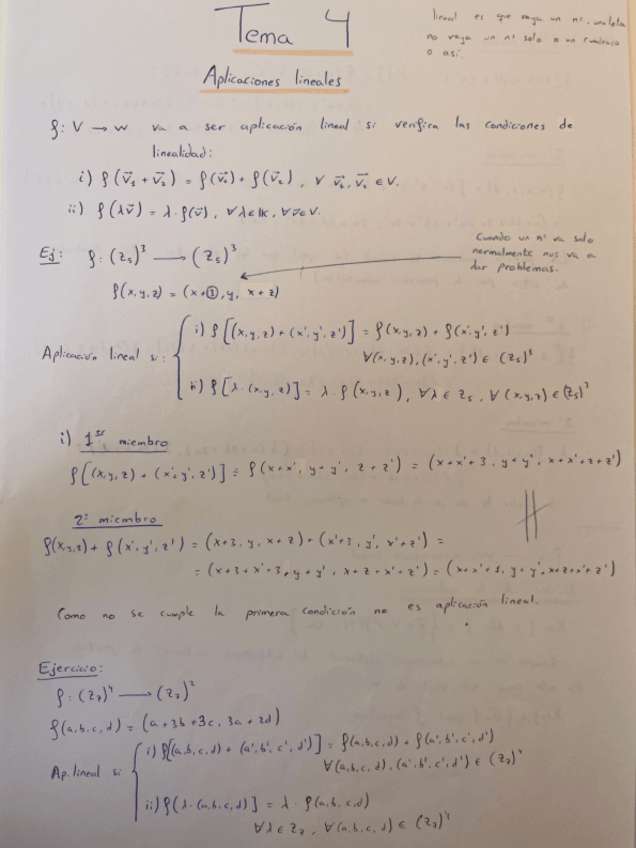 Tema 4
lineal es que vaya un nº. una letra
no vaya un nº solo o un cuadrado
o así.
Aplicaciones lineales
f: V → W va a ser aplicación lineal si verifica las condiciones de
linealidad:
i) f(v⃗₁ + v⃗₂) = f(v⃗₁) + f(v⃗₂), ∀ v⃗₁, v⃗₂ ∈ V.
ii) f(λv⃗) = λ · f(v⃗), ∀λ∈K, ∀v⃗∈V.
Ej: f: (Z₅)³ → (Z₅)³
Cuando un nº va solo
normalmente nos va a
dar problemas.
f(x,y,z) = (x+③, y, x+z)
Aplicación lineal si:
i) f[(x,y,z) + (x',y',z')] = f(x,y,z) + f(x',y',z')
∀(x,y,z), (x',y',z') ∈ (Z₅)³
ii) f[λ·(x,y,z)] = λ · f(x,y,z), ∀λ ∈ Z₅, ∀(x,y,z) ∈ (Z₅)³
i) 1er miembro
f[(x,y,z) + (x',y',z')] = f(x+x', y+y', z+z') = (x+x'+3, y+y', x+x'+z+z')
2º miembro
f(x,y,z) + f(x',y',z') = (x+3, y, x+z) + (x'+3, y', x'+z') =
= (x+3+x'+3, y+y', x+z+x'+z') = (x+x'+1, y+y', x+z+x'+z')
Como no se cumple la primera condición no es aplicación lineal.
Ejercicio:
f: (Z₇)⁴ → (Z₇)²
f(a,b,c,d) = (a+3b+3c, 3a+2d)
Ap. lineal si
i) f[(a,b,c,d) + (a',b',c',d')] = f(a,b,c,d) + f(a',b',c',d')
∀(a,b,c,d), (a',b',c',d') ∈ (Z₇)⁴
ii) f[λ·(a,b,c,d)] = λ · f(a,b,c,d)
∀λ∈Z₇, ∀(a,b,c,d) ∈ (Z₇)⁴